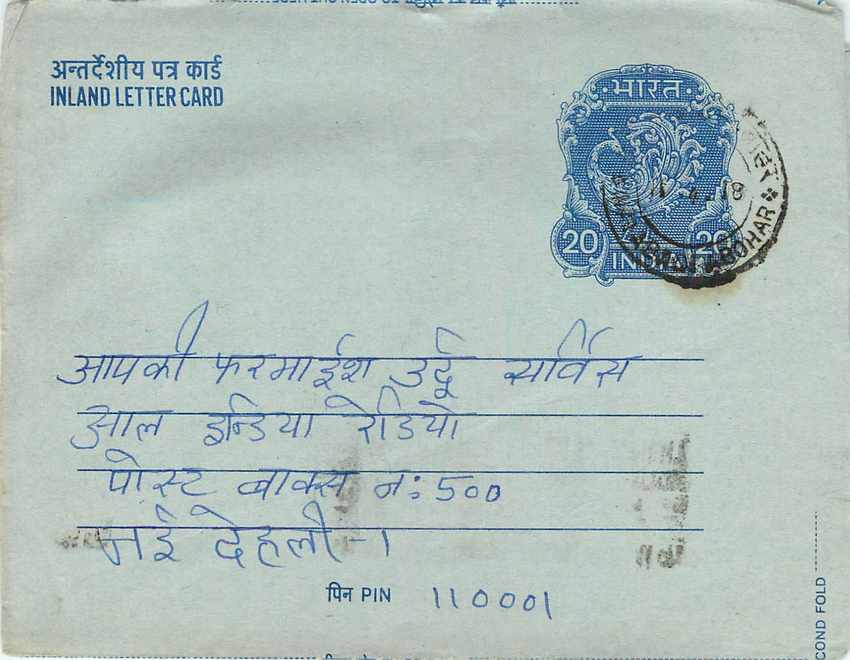 अन्तर्देशीय पत्र कार्ड
INLAND LETTER CARD
भारत
20 20
INDIA
ABOHAR
आपकी फरमाईश उर्दू सर्विस
आल इन्डिया रेडियो
पोस्ट बाक्स न: 500
नई देहली-1
पिन PIN 110001
COND FOLD